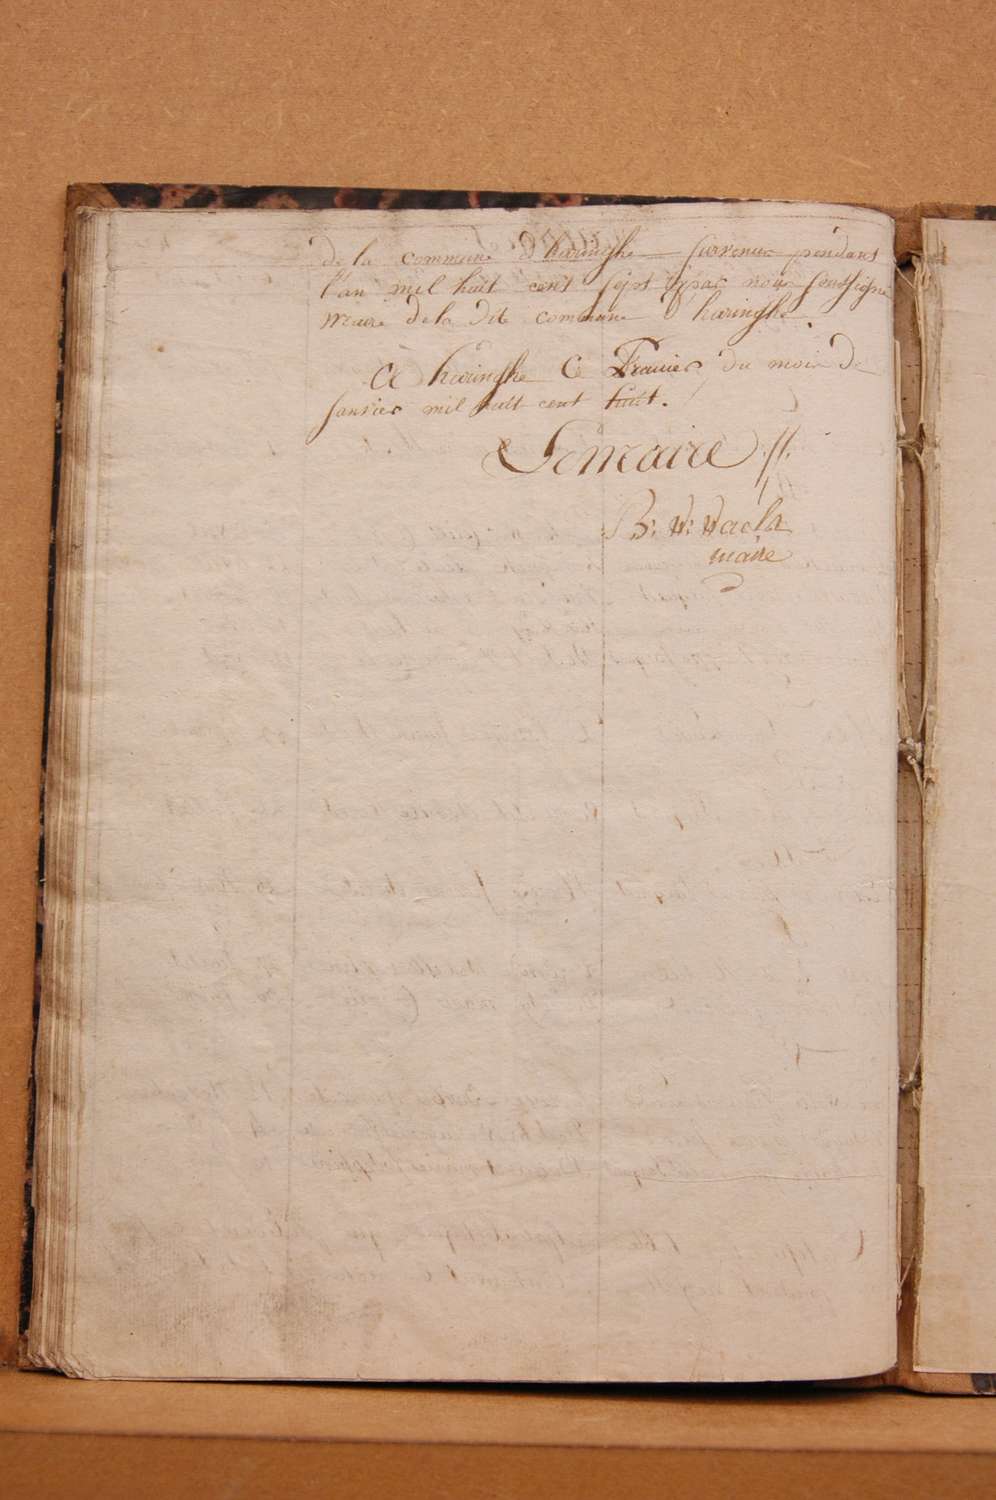 de la commune d'haringhe survenus pendans
l'an mil huit cent sept par nous soussigne
maire de la dite commune d'haringhe
a haringhe Ce Premier du mois de
Janvier mil huit cent huit.
Le maire
B: W: Waels
maire